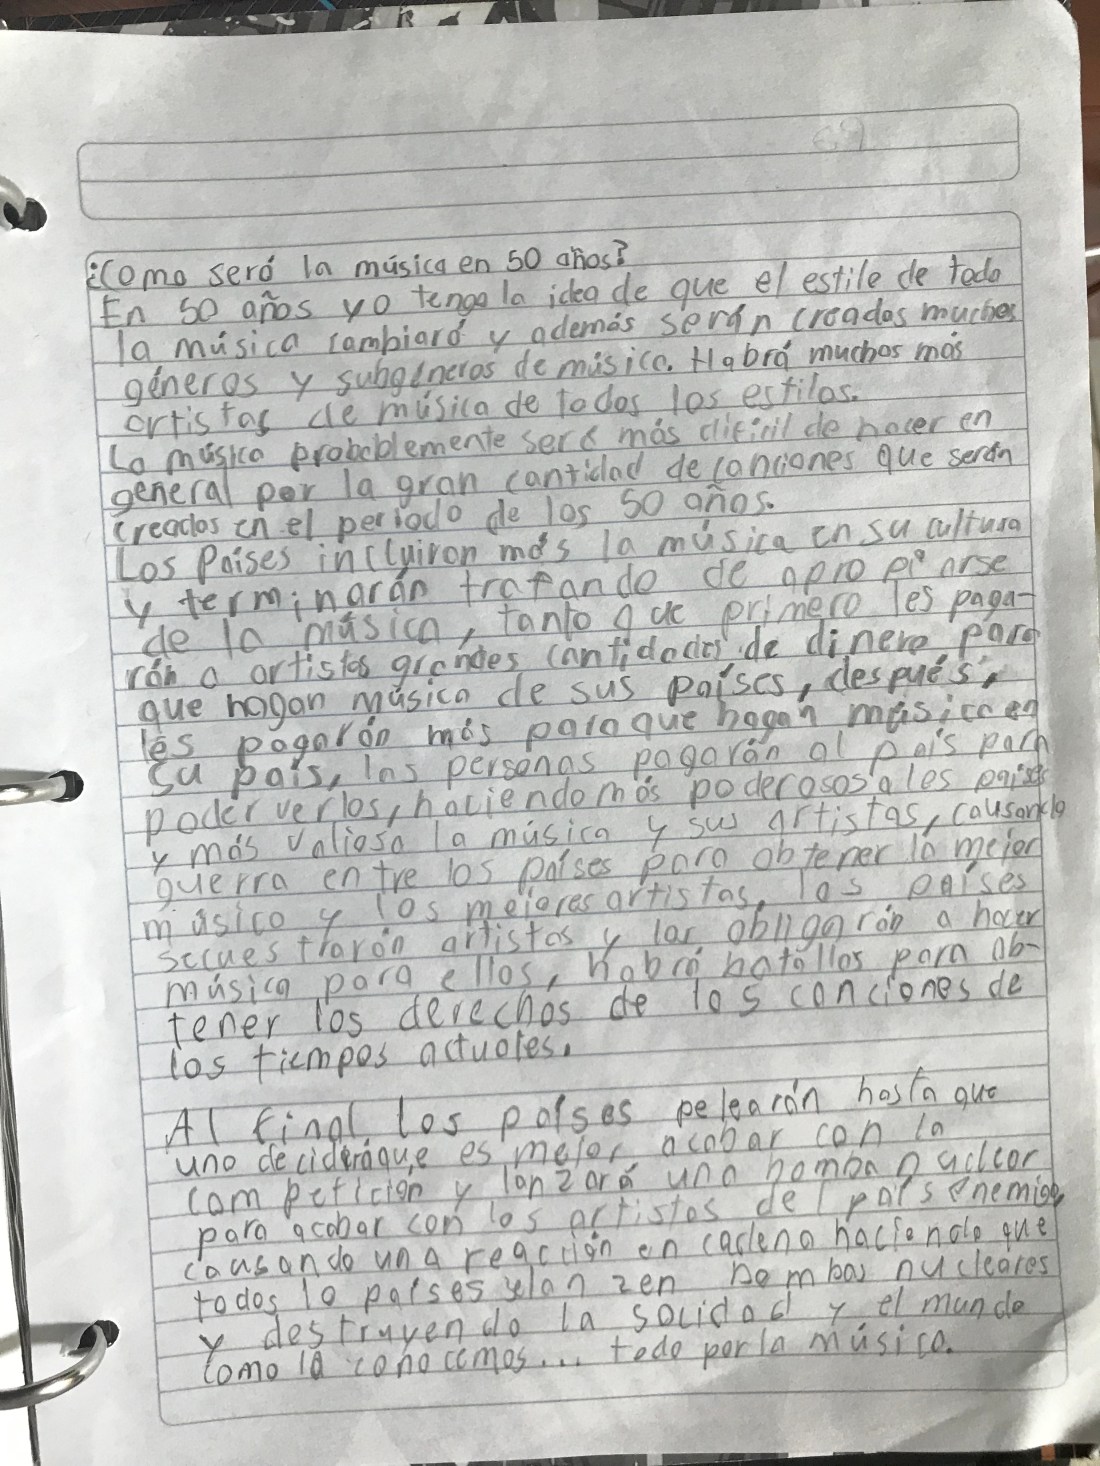 ¿Como será la música en 50 años?
En 50 años yo tengo la idea de que el estilo de toda
la música cambiará y además serán creados muchos
géneros y subgéneros de música. Habrá muchos más
artistas de música de todos los estilos.
La música probablemente será más dificil de hacer en
general por la gran cantidad de canciones que serán
creadas en el periodo de los 50 años.
Los Paises incluiron más la música en su cultura
y terminarán tratando de apropiarse
de la música, tanto que primero les paga-
rán a artistas grandes cantidades de dinero para
que hagan música de sus países, después,
les pagarán más para que hagan música en
su país, las personas pagarán al país para
poder verlos, haciendo más poderosos a los paises
y más valiosa la música y sus artistas, causando
guerra entre los países para obtener la mejor
música y los mejores artistas, los países
secuestrarán artistas y los obligarán a hacer
música para ellos, habrá batallas para ob-
tener los derechos de las canciones de
los tiempos actuales.
Al final los países pelearán hasta que
uno decidirá que es mejor acabar con la
competición y lanzará una bomba nuclear
para acabar con los artistas del país enemigo,
causando una reacción en cadena haciendo que
todos lo países lanzen bombas nucleares
y destruyendo la sociedad y el mundo
como la conocemos... todo por la música.